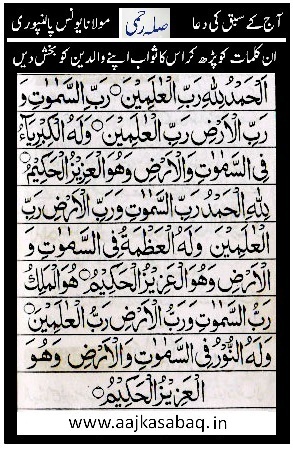 آج کے سبق کی دعا صلہ رحمی مولانا یونس پالنپوری
ان کلمات کو پڑھ کر اس کا ثواب اپنے والدین کو بخش دیں
اَلْحَمْدُ لِلّٰهِ رَبِّ الْعٰلَمِيْنَ ○ رَبِّ السَّمٰوٰتِ وَ
رَبِّ الْاَرْضِ رَبِّ الْعٰلَمِيْنَ ○ وَلَهُ الْكِبْرِيَآءُ
فِى السَّمٰوٰتِ وَالْاَرْضِ وَهُوَ الْعَزِيْزُ الْحَكِيْمُ ○
لِلّٰهِ الْحَمْدُ رَبِّ السَّمٰوٰتِ وَرَبِّ الْاَرْضِ رَبِّ
الْعٰلَمِيْنَ وَلَهُ الْعَظَمَةُ فِى السَّمٰوٰتِ وَ
الْاَرْضِ وَهُوَ الْعَزِيْزُ الْحَكِيْمُ ○ هُوَ الْمَلِكُ
رَبُّ السَّمٰوٰتِ وَرَبُّ الْاَرْضِ رَبُّ الْعٰلَمِيْنَ ○
وَلَهُ النُّوْرُ فِى السَّمٰوٰتِ وَالْاَرْضِ وَهُوَ
الْعَزِيْزُ الْحَكِيْمُ ○
www.aajkasabaq.in